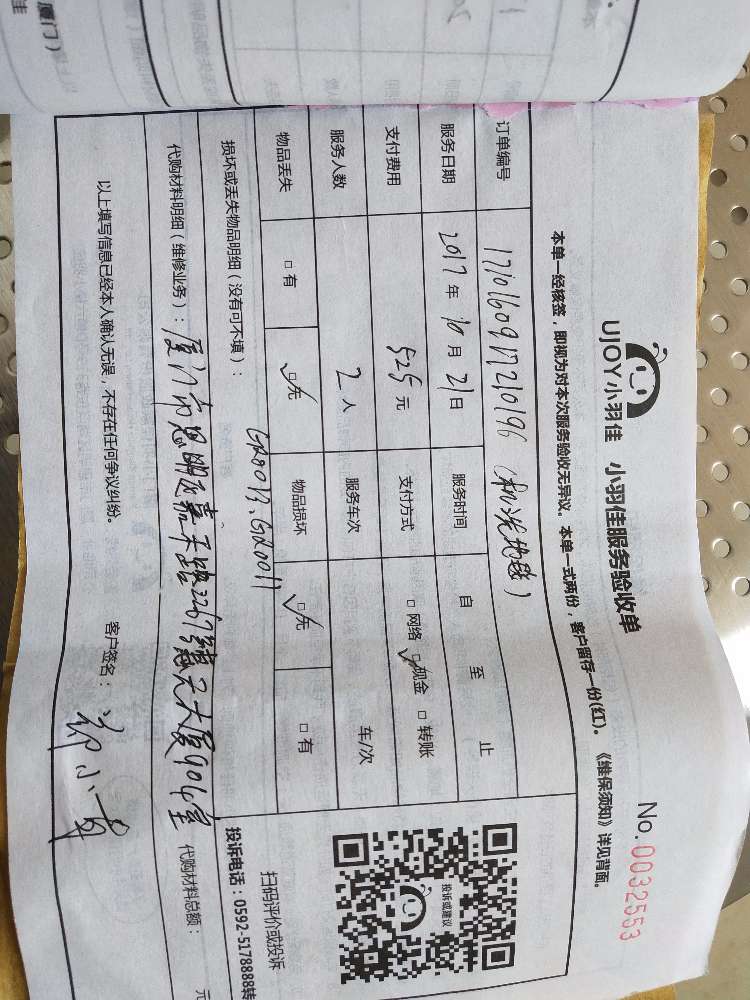 UJOY小羽佳 小羽佳服务验收单
No.0032553
本单一经核签，即视为对本次服务验收无异议。本单一式两份，客户留存一份(红)。《维保须知》详见背面。
订单编号 1710160917210196（机洗地毯）
服务日期 2017年10月21日 服务时间 自 至 止
支付费用 525元 支付方式 □网络 ☑现金 □转账
服务人数 2人 服务车次 车/次
物品丢失 □有 ☑无 物品损坏 ☑无 □有
损坏或丢失物品明细（没有可不填）：
代购材料明细（维修业务）：厦门市思明区嘉禾路267号 大厦904室 代购材料总额： 元
以上填写信息已经本人确认无误，不存在任何争议纠纷。 客户签名：
投诉或建议
扫码评价或投诉
投诉电话：0592-5178888转